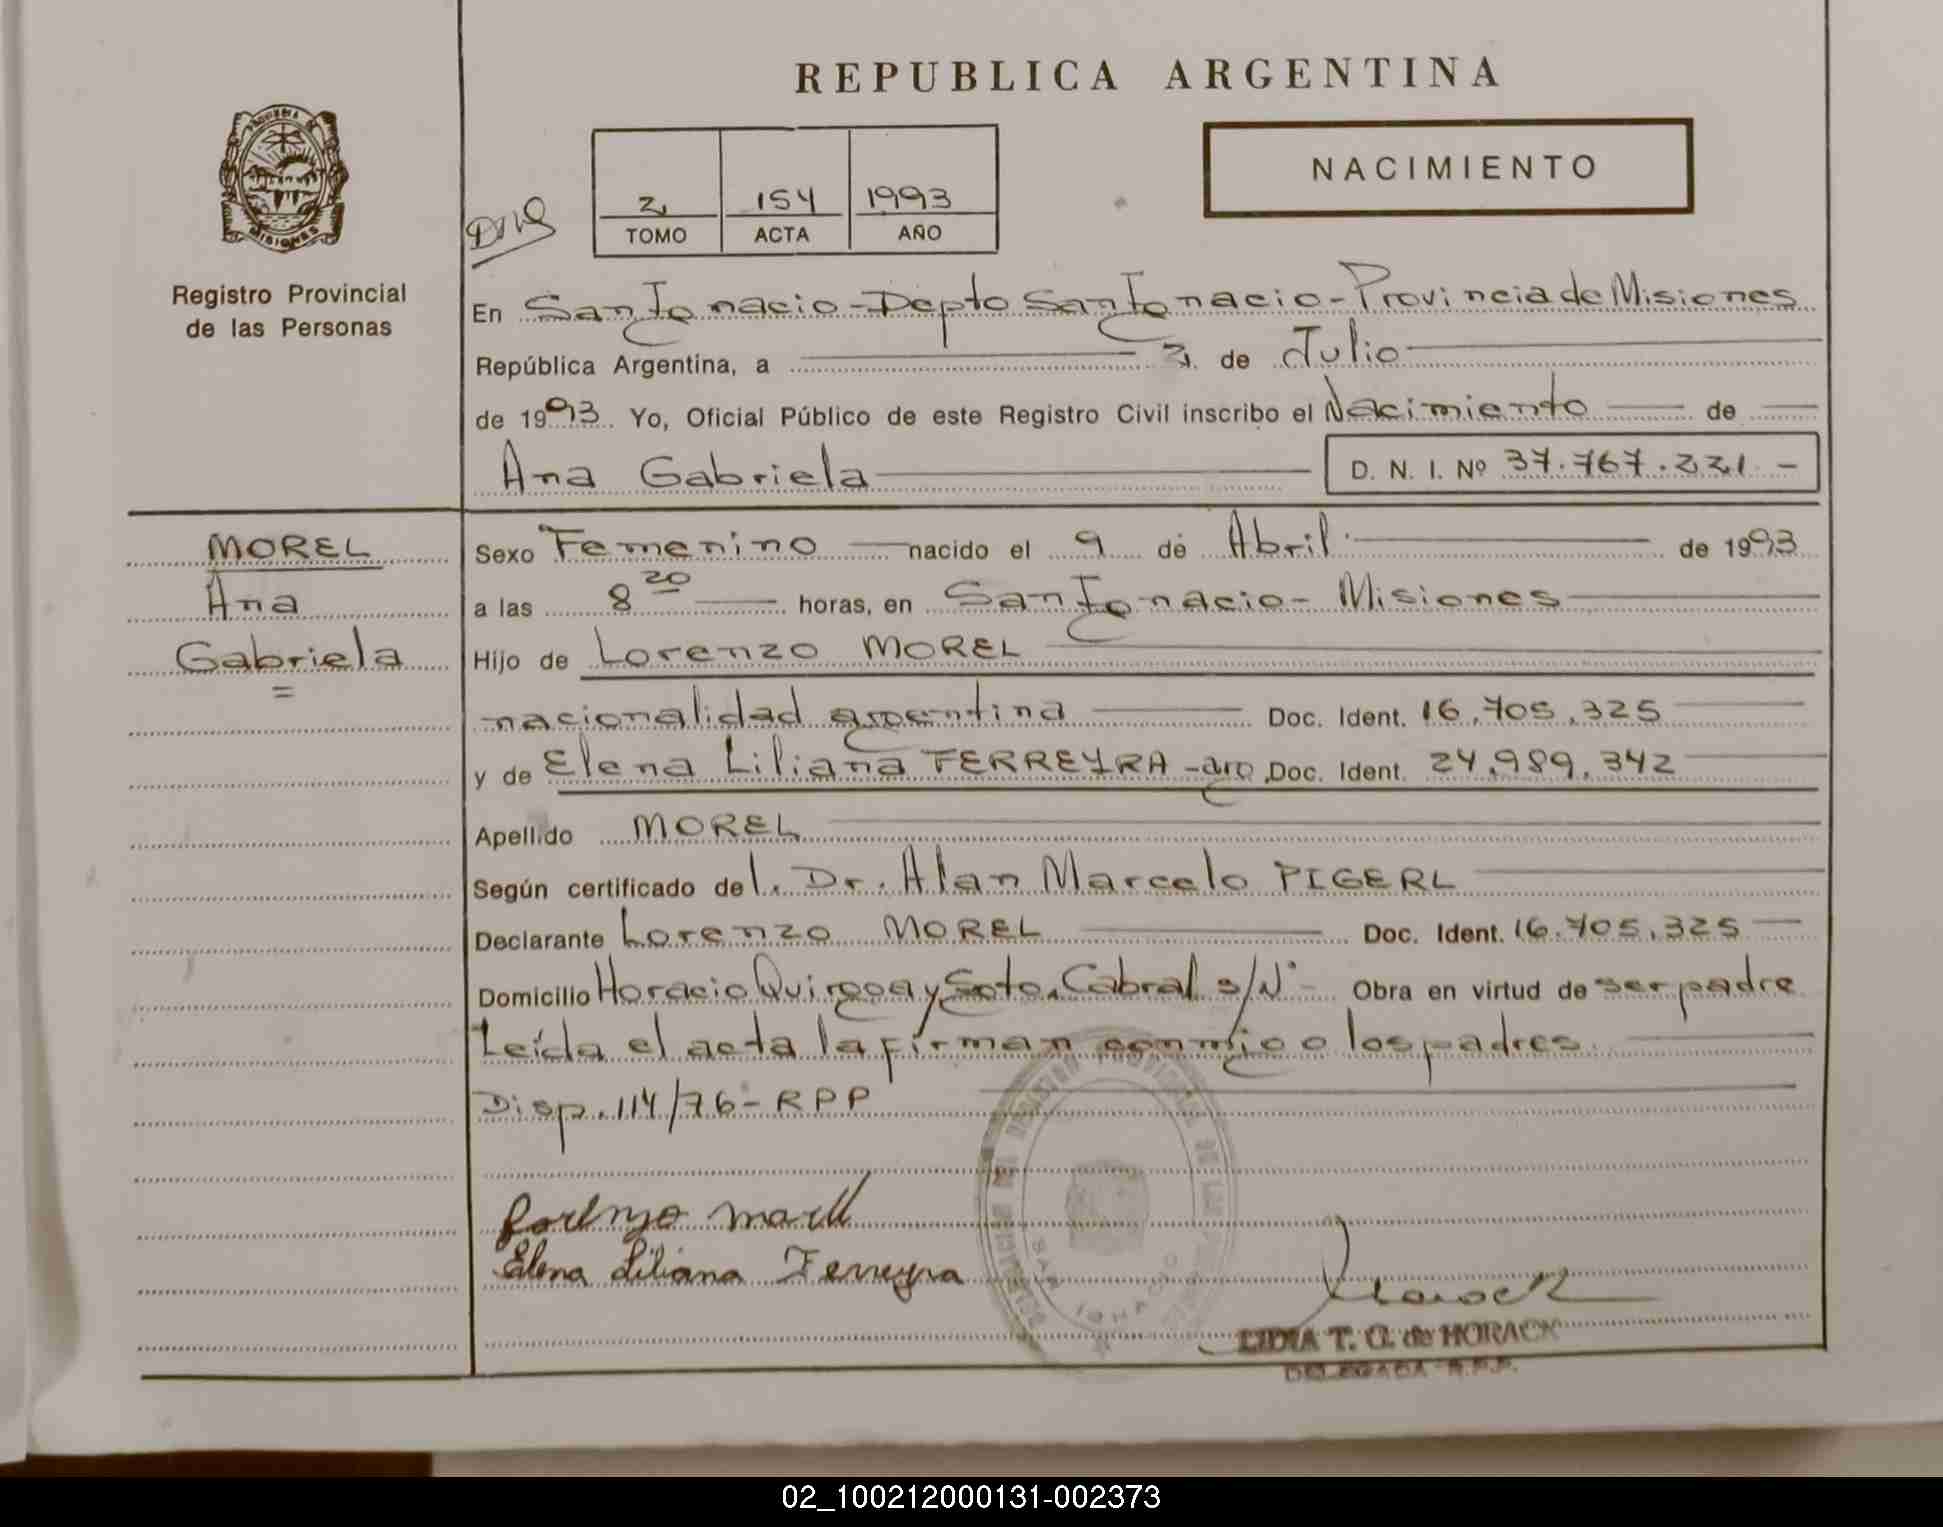 REPUBLICA ARGENTINA
PROVINCIA DE
MISIONES
Registro Provincial
de las Personas
2 154 1993
TOMO ACTA AÑO
NACIMIENTO
En San Ignacio - Depto San Ignacio - Provincia de Misiones
República Argentina, a 2 de Julio
de 1993. Yo, Oficial Público de este Registro Civil inscribo el Nacimiento de
Ana Gabriela D. N. I. Nº 37.767.221.-
MOREL
Ana
Gabriela
Sexo Femenino nacido el 9 de Abril de 1993
a las 8 20 horas, en San Ignacio - Misiones
Hijo de Lorenzo MOREL
nacionalidad argentina Doc. Ident. 16.705.325
y de Elena Liliana FERREYRA - arg Doc. Ident. 24.989.342
Apellido MOREL
Según certificado del Dr. Alan Marcelo PIGERL
Declarante Lorenzo MOREL Doc. Ident. 16.705.325
Domicilio Horacio Quiroga y Sgto. Cabral s/Nº - Obra en virtud de ser padre
Leída el acta la firman conmigo los padres.
Disp. 114/76 - RPP
Lorenzo Morel
Elena Liliana Ferreyra
SAN IGNACIO
LIDIA T. G. de HORACK
DELEGADA R.P.P.
02_100212000131-002373